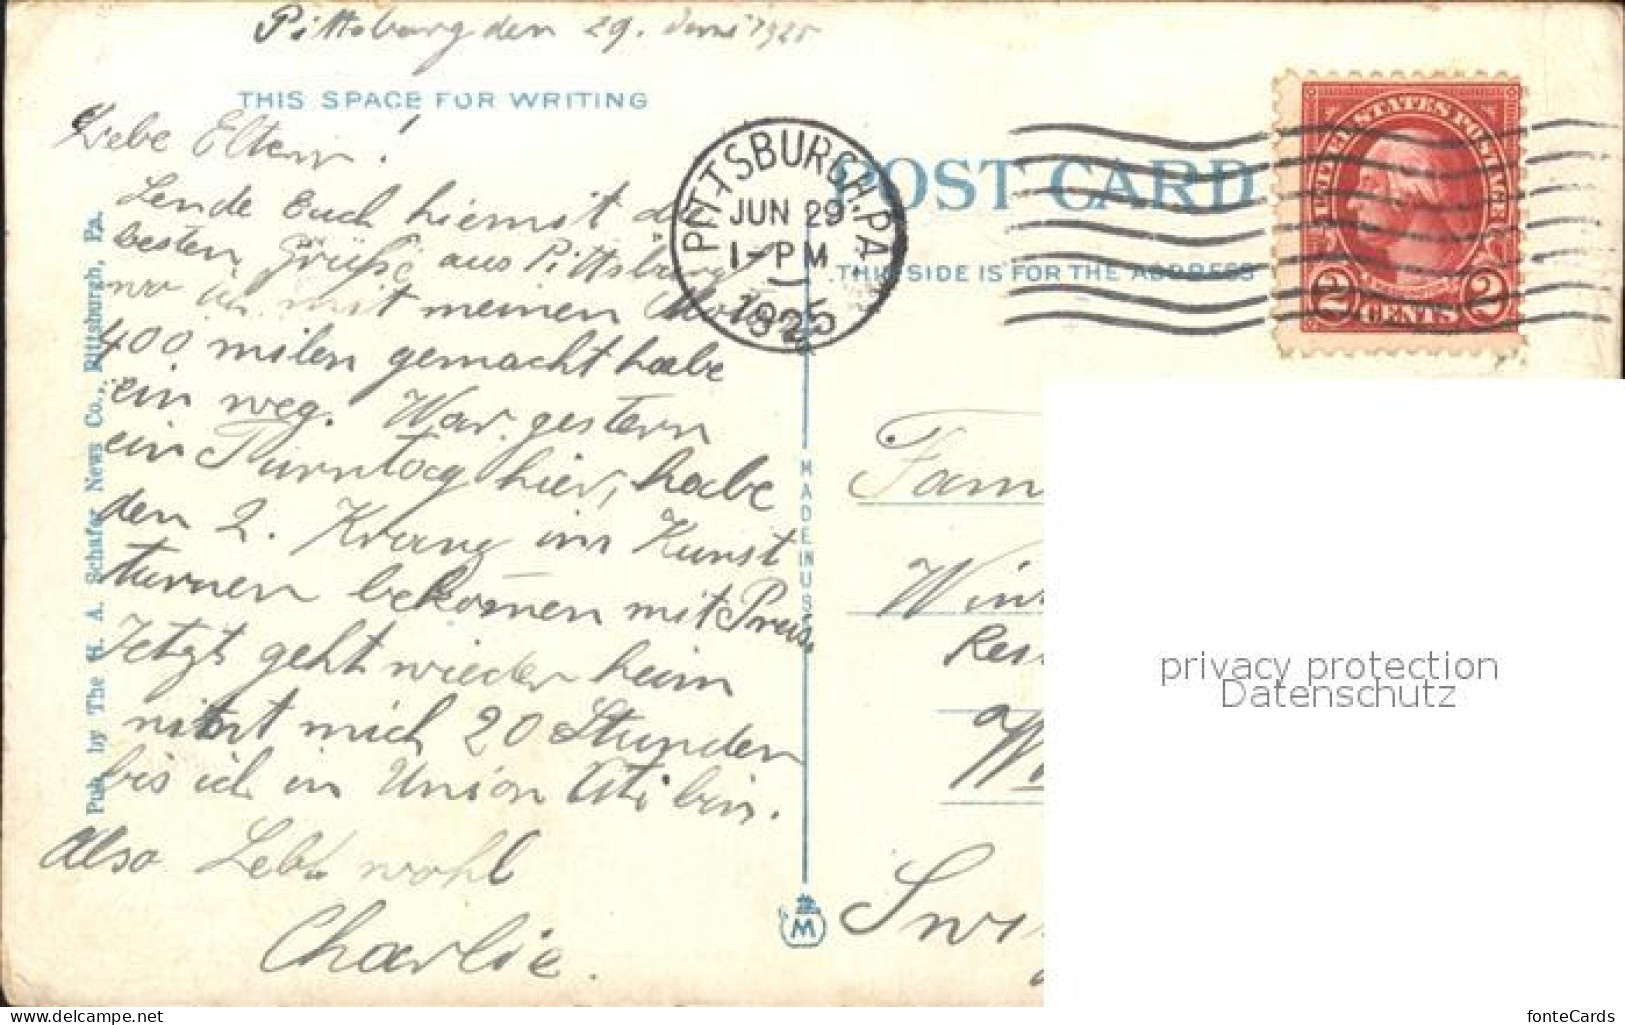 Pittsburg den 29. Juni 1925
THIS SPACE FOR WRITING
Liebe Eltern!
Sende Euch hiemit d
besten Grüße aus Pittsburg
wo ich mit meinen
400 milen gemacht habe
ein weg. War gestern
ein Turntag hier, habe
den 2. Kranz im Kunst
turnen bekom̅en mit Preis.
Jetzt geht wieder heim
nimt mich 20 Stunden
bis ich in Union Citi bin.
Also Lebt wohl
Charlie.
Pub. by The H. A. Schafer News Co., Pittsburgh, Pa.
MADE IN U.S.
M
PITTSBURGH, PA.
JUN 29
1-PM
1925
POST CARD
THIS SIDE IS FOR THE ADDRESS
UNITED STATES POSTAGE
2 CENTS 2
Fam
Win
Res
Wi
Swi
privacy protection
Datenschutz
www.delcampe.net
fonteCards